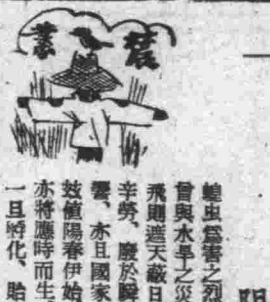 農業
蝗虫爲害之烈
曾與水旱之災
飛則遮天蔽日
辛勞、廢於瞬
響、亦且國家
玆值陽春伊始
亦將應時而生
一旦孵化、胎